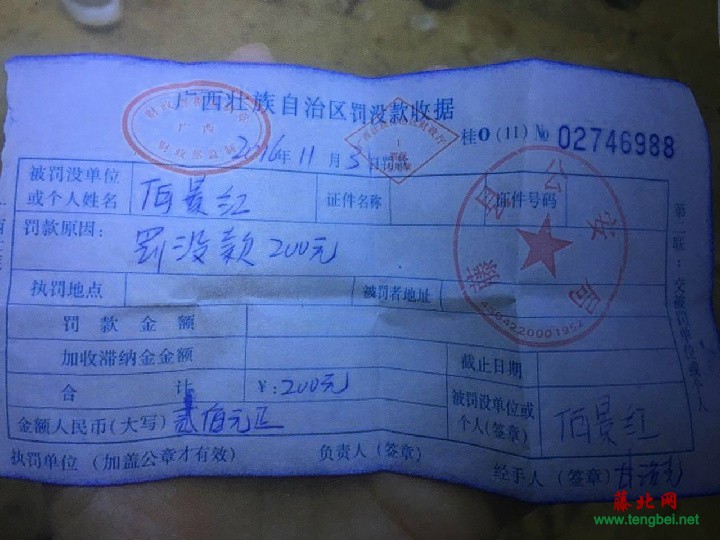 广西壮族自治区罚没款收据
2016年11月5日
桂O(11)№ 02746988
被罚没单位或个人姓名 景红 证件名称 证件号码
罚款原因：
罚没款200元
执罚地点 被罚者地址
罚款金额
加收滞纳金金额 截止日期
合计 ¥:200元 被罚没单位或个人(签章) 景红
金额人民币(大写) 贰佰元正
执罚单位（加盖公章才有效） 负责人（签章） 经手人（签章）
第二联：交被罚单位或个人
藤县公安局
广西
财政部监制
藤北网
www.tengbei.net